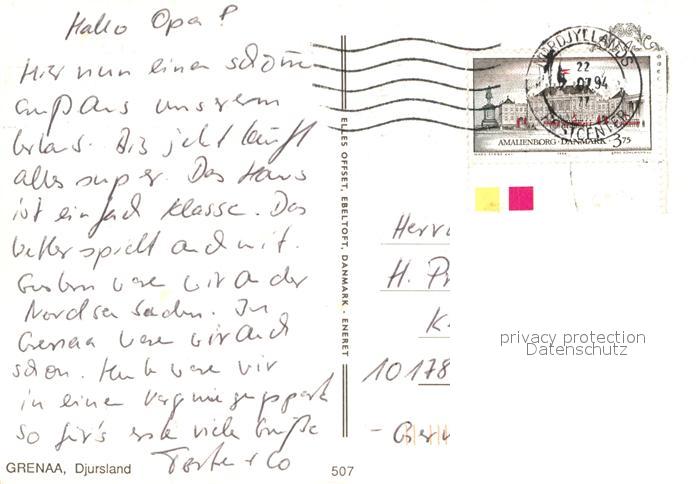 Hallo Opa!
Hier nun einen schönen
Gruß aus unserem
Urlaub. Bis jetzt läuft
alles super. Das Haus
ist einfach Klasse. Das
Wetter spielt auch mit.
Gestern waren wir an der
Nordsee baden. In
Grenaa waren wir auch
schon. Heute waren wir
in einem Vergnügungspark
So für's erste viele Grüße
+ Co
GRENAA, Djursland
507
ELLES OFFSET, EBELTOFT, DANMARK · ENERET
NORDJYLLANDS
22
07.94
POSTCENTER
AMALIENBORG · DANMARK 3.75
Herrn
H. Pr
K
10178
privacy protection
Datenschutz